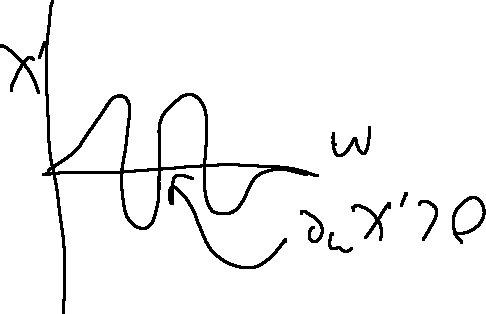 χ'
ω
∂ω χ' > 0